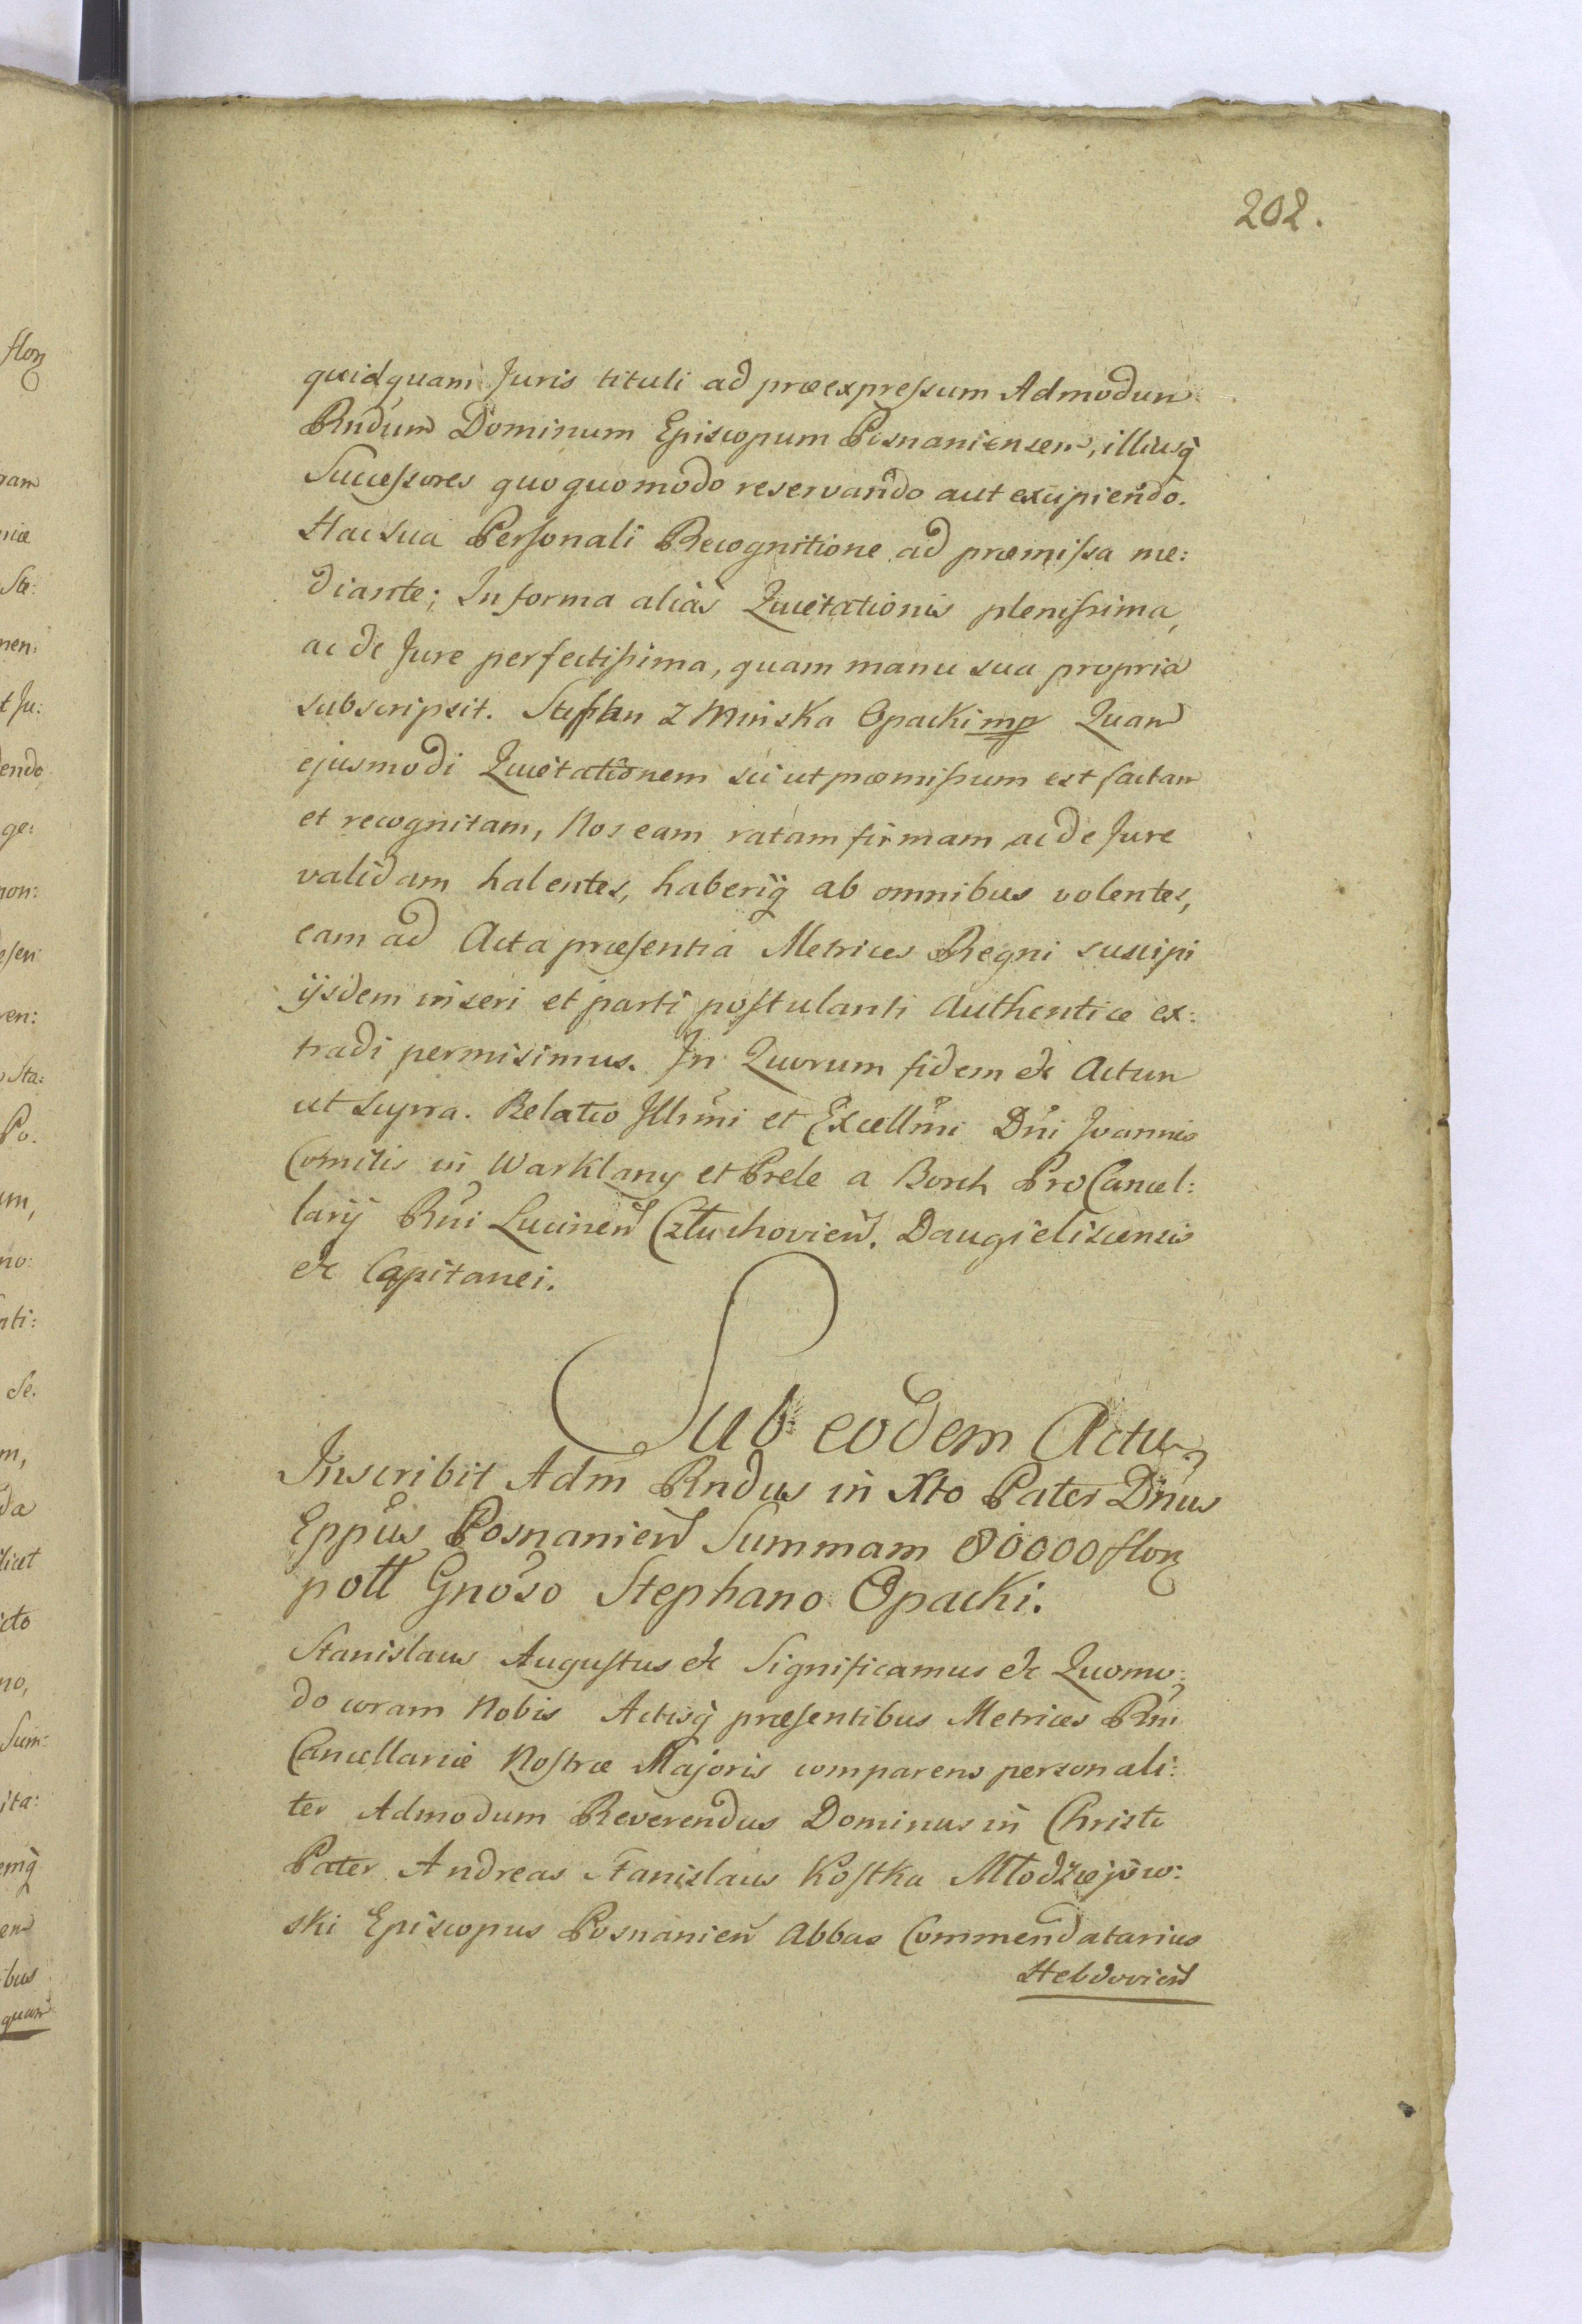 202.
quidquam Juris tituli ad præexpressum Admodum
Rndum Dominum Episcopum Posnaniensem, illiusq
Successores quoquomodo reservando aut excipiendo.
Hac sua Personali Recognitione ad præmissa me:
diante; In forma aliàs Quietationis plenissima,
ac de Jure perfectissima, quam manu sua propria
subscripsit. Stefan z Minska Opacki mp Quam
ejusmodi Quietationem sic ut præmissum est factam
et recognitam, Nos eam ratam firmam ac de Jure
validam habentes, haberiq ab omnibus volentes,
eam ad Acta præsentia Metrices Regni suscipi
ijsdem inseri et parti postulanti Authentice ex:
tradi permisimus. In Quorum fidem &c Actum
ut supra. Relatio Illmi et Excellmi Dni Joannis
Comitis in Warklany et Prele a Borch ProCancel:
larij Rni Lucinen Człuchovien. Daugieliscensis
&c Capitanei.
Sub eodem Actu
Inscribit Adm Rndus in Xto Pater Dnus
Eppus Posnanien Summam 80000 flor
poll Gnoso Stephano Opacki.
Stanislaus Augustus &c Significamus &c Quomo:
do coram Nobis Actisq præsentibus Metrices Rni
Cancellariæ Nostræ Majoris comparens personali:
ter Admodum Reverendus Dominus in Christo
Pater Andreas Stanislaus Kostka Młodziejow:
ski Episcopus Posnanien Abbas Commendatarius
Hebdovien